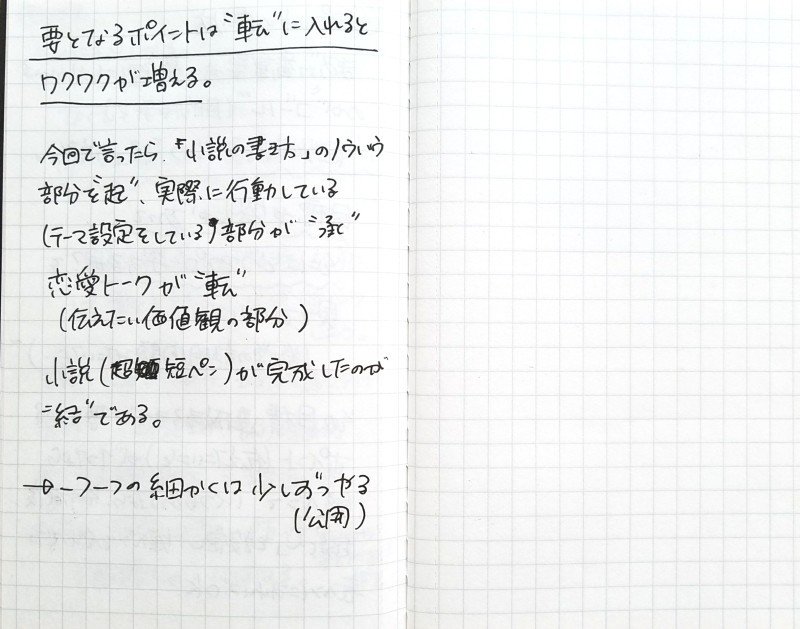 要となるポイントは"転"に入れると
ワクワクが増える。
今回で言ったら、「小説の書き方」のノウハウ
部分を"起"、実際に行動している
(テーマ設定をしている)部分が"承"
恋愛トークが"転"
(伝えたい価値観の部分)
小説(超短ペン)が完成したのが
"結"である。
→一つ一つの細かくは少しずつやる
(公開)